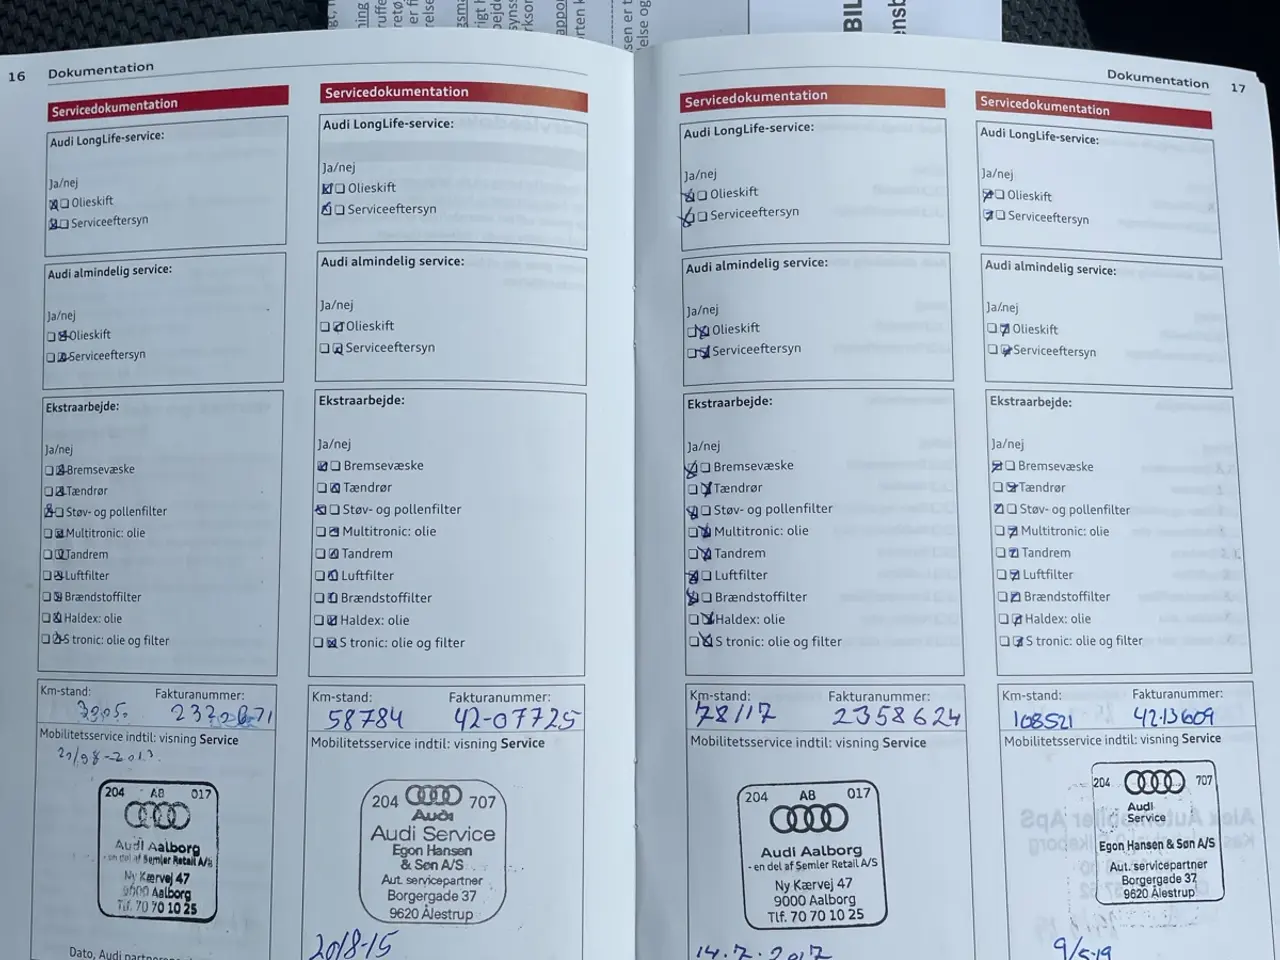 16 Dokumentation
Servicedokumentation
Audi LongLife-service:
Ja/nej
Olieskift
Serviceeftersyn
Audi almindelig service:
Ja/nej
Olieskift
Serviceeftersyn
Ekstraarbejde:
Ja/nej
Bremsevæske
Tændrør
Støv- og pollenfilter
Multitronic: olie
Tandrem
Luftfilter
Brændstoffilter
Haldex: olie
S tronic: olie og filter
Km-stand: Fakturanummer:
Mobilitetsservice indtil: visning Service
204 A8 017
Audi Aalborg
- en del af Semler Retail A/S
Ny Kærvej 47
9000 Aalborg
Tlf. 70 70 10 25
Dato, Audi
Servicedokumentation
Audi LongLife-service:
Ja/nej
Olieskift
Serviceeftersyn
Audi almindelig service:
Ja/nej
Olieskift
Serviceeftersyn
Ekstraarbejde:
Ja/nej
Bremsevæske
Tændrør
Støv- og pollenfilter
Multitronic: olie
Tandrem
Luftfilter
Brændstoffilter
Haldex: olie
S tronic: olie og filter
Km-stand: Fakturanummer:
58784 42-07725
Mobilitetsservice indtil: visning Service
204 707
Audi
Audi Service
Egon Hansen
& Søn A/S
Aut. servicepartner
Borgergade 37
9620 Ålestrup
20/8-15
Dokumentation 17
Servicedokumentation
Audi LongLife-service:
Ja/nej
Olieskift
Serviceeftersyn
Audi almindelig service:
Ja/nej
Olieskift
Serviceeftersyn
Ekstraarbejde:
Ja/nej
Bremsevæske
Tændrør
Støv- og pollenfilter
Multitronic: olie
Tandrem
Luftfilter
Brændstoffilter
Haldex: olie
S tronic: olie og filter
Km-stand: Fakturanummer:
78117 2358624
Mobilitetsservice indtil: visning Service
204 A8 017
Audi Aalborg
- en del af Semler Retail A/S
Ny Kærvej 47
9000 Aalborg
Tlf. 70 70 10 25
14.7.2017
Servicedokumentation
Audi LongLife-service:
Ja/nej
Olieskift
Serviceeftersyn
Audi almindelig service:
Ja/nej
Olieskift
Serviceeftersyn
Ekstraarbejde:
Ja/nej
Bremsevæske
Tændrør
Støv- og pollenfilter
Multitronic: olie
Tandrem
Luftfilter
Brændstoffilter
Haldex: olie
S tronic: olie og filter
Km-stand: Fakturanummer:
108521 42-13609
Mobilitetsservice indtil: visning Service
204 707
Audi
Service
Egon Hansen & Søn A/S
Aut. servicepartner
Borgergade 37
9620 Ålestrup
9/5-19